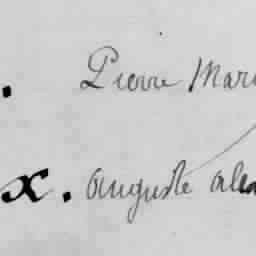 . Pierre Mari
x. auguste alex